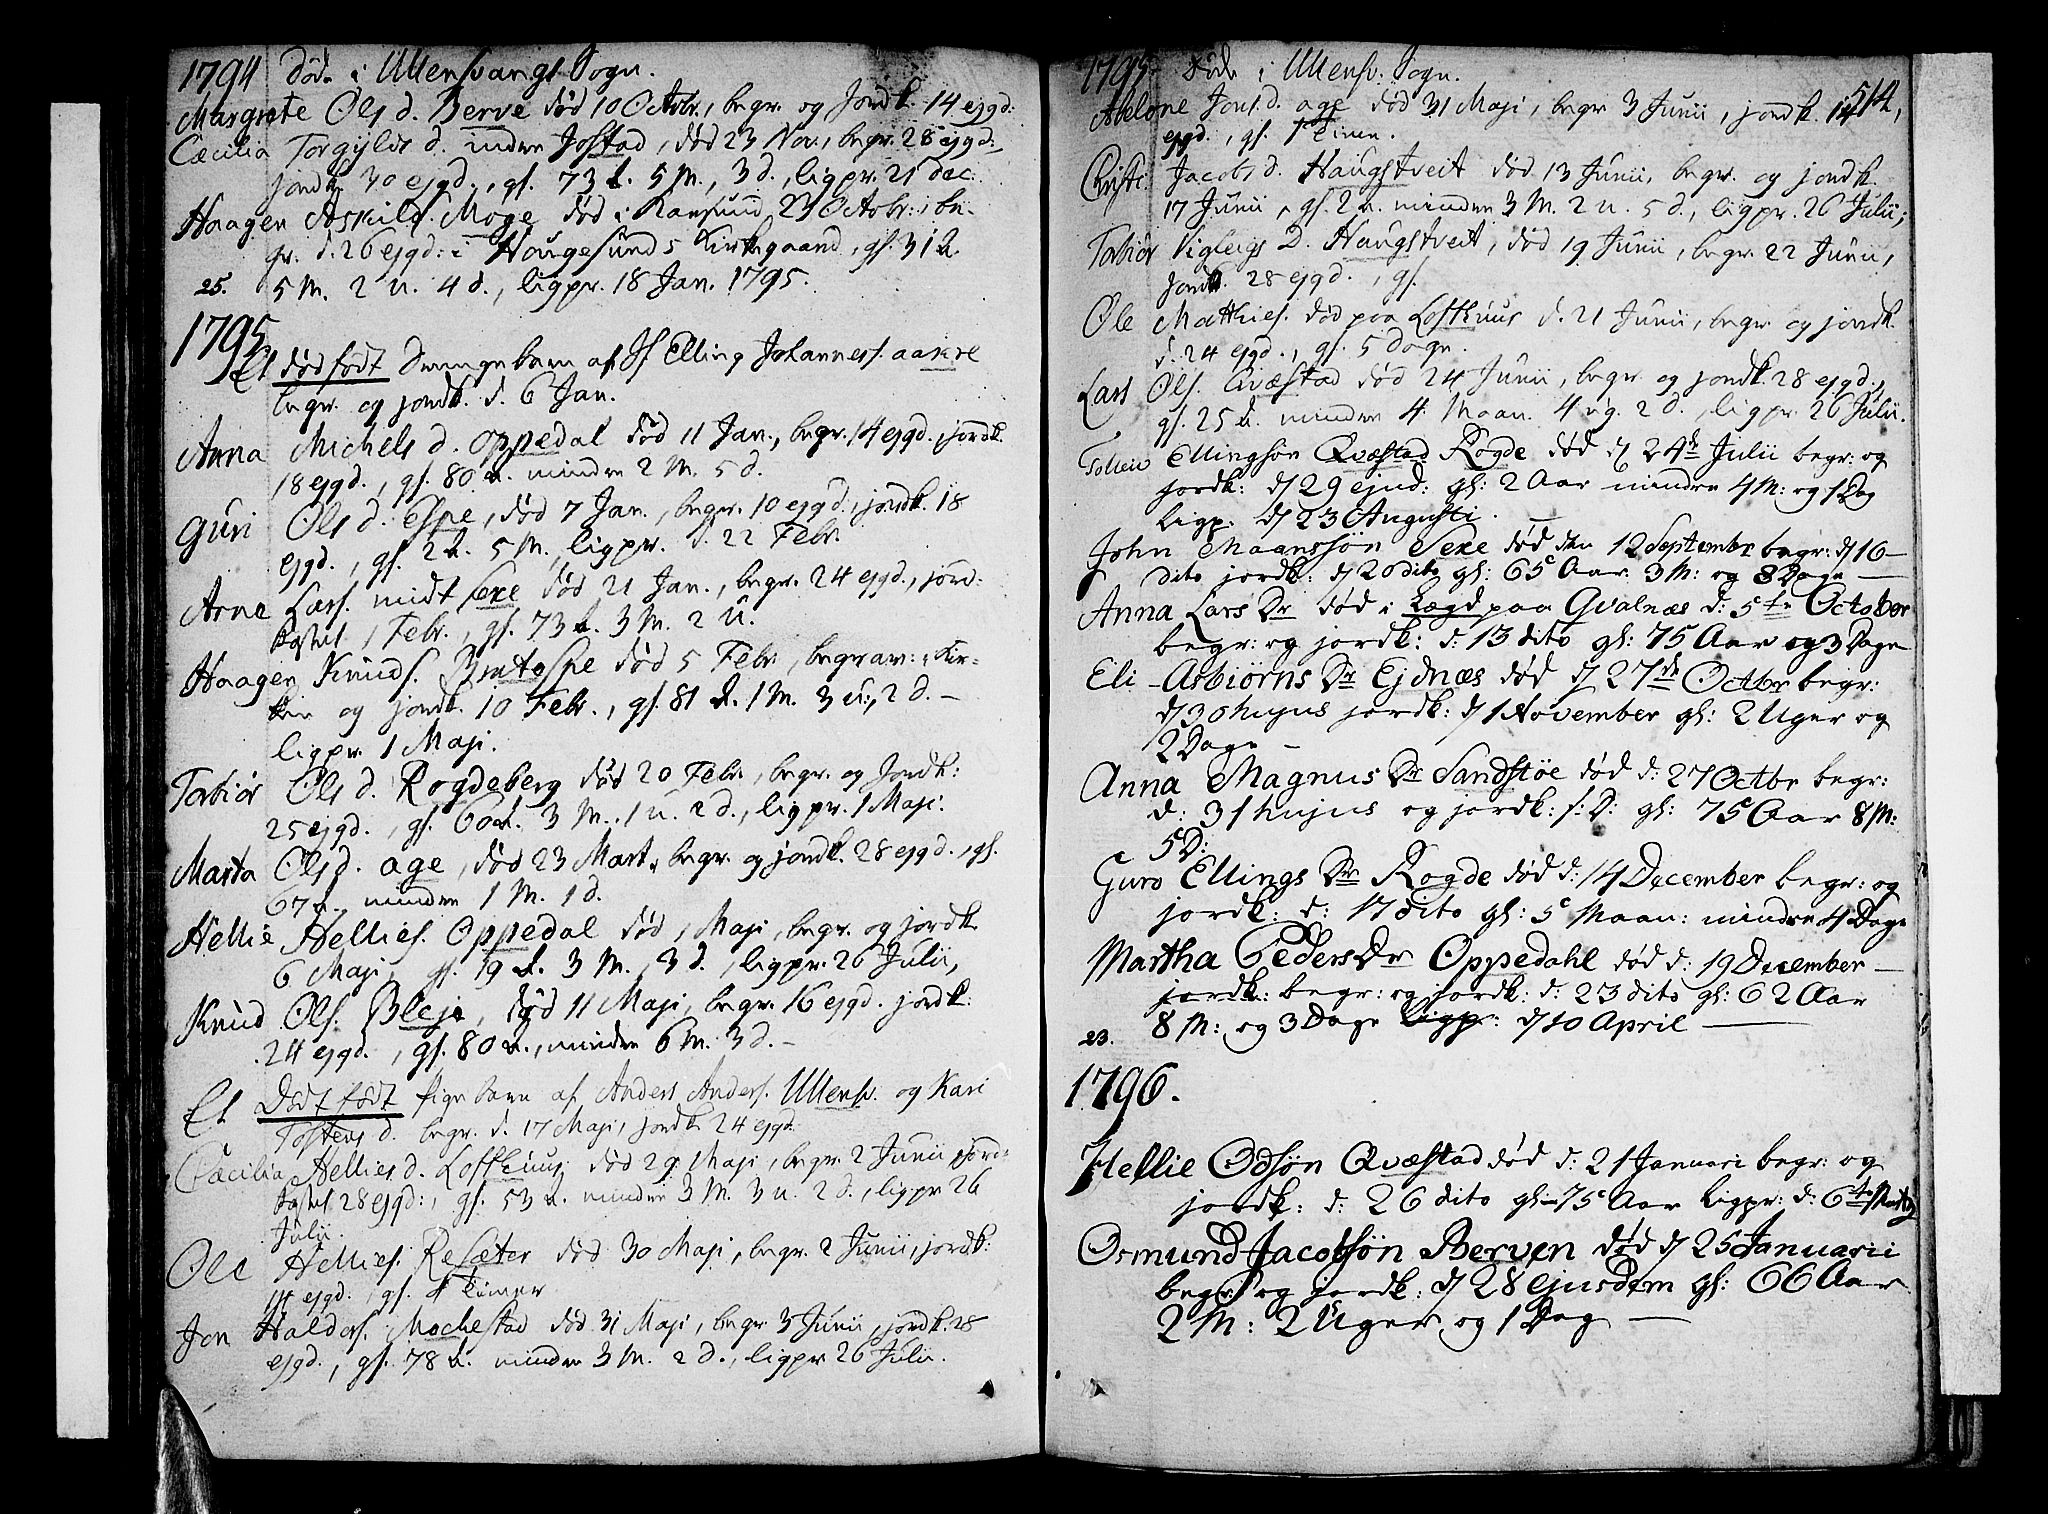 1794 Døde i Ullensvangs Sogn.
Margrete Ols d. Berve død 10 Octobr., begr. og Jordk. 14 ejgd:
Cæcilia Torgyls d. indre Jostad, død 23 Nov., begr. 28 ejgd.,
jordk. 30 ejgd., gl. 73 A. 5 M., 3 d., ligpr. 21 Dec.
Haagen Askilds. Moge død i 23 Octobr: be-
gr. d. 26 ejgd: i Haugesunds Kirkegaard, gl. 31 A.
25. 5 M. 2 U. 4 d., ligpr. 18 Jan. 1795.
1795
Et dødfødt Drengebarn af Elling Johanness. aa
begr. og jordk. d. 6 Jan.
Anna Michels d. Oppedal død 11 Jan., begr. 14 ejgd., jordk.
18 ejgd., gl. 80 A. mindre 2 M. 5 d.
Guri Ols d. Espe, død 7 Jan., begr. 10 ejgd., jordk. 18
ejgd., gl. 2 A. 5 M., ligpr. d. 22 Febr.
Arne Lars. midt Sexe død 21 Jan., begr. 24 ejgd., jord-
kastet 1 Febr., gl. 73 A. 3 M. 2 U.
Haagen Knuds. død 5 Febr., begrav: i Kir-
ken og jordk. 10 Febr., gl. 81 A. 1 M. 3 u., 2 d. –
ligpr. 1 Maji.
Torbiør Ols d. Rogdeberg død 20 Febr., begr. og Jordk:
25 ejgd., gl. 60 A. 3 M. 1 u. 2 d., ligpr. 1 Maji.
Marta Ols d. age, død 23 Mart., begr. og jordk. 28 ejgd., gl.
67 A. mindre 1 M. 1 d.
Hellie Hellies. Oppedal død 1 Maji, begr. og jordk.
6 Maji, gl. 19 A. 3 M. 3 d., ligpr. 26 Julii,
Knud Ols. Bleje, død 11 Maji, begr. 16 ejgd. jordk:
24 ejgd., gl. 80 A., mindre 6 M. 3 d. –
Et Dødfødt Pigebarn af Anders Anders. Ullensv. og Kari
Tostens d. begr. d. 17 Maji, jordk. 24 ejgd.
Cæcilia Hellies d. Lofthuus, død 29 Maji, begr. 2 Junii, jord-
kastet 28 ejgd:, gl. 53 A. mindre 3 M. 3 u. 2 d., ligpr. 26
Julii.
Ole Hellies. Resæter død 30 Maji, begr. 2 Junii, jordk:
14 ejgd., gl. timer
Jon Halders. Mochestad død 31 Maji, begr. 3 Junii, jordk. 28
ejgd., gl. 78 A. mindre 3 M. 2 d., ligpr. 26 Julii.
1795 Døde i Ullensv. Sogn.
514,
Abelone Jons d. age død 31 Maji, begr. 3 Junii, jordk. 14
ejgd., gl. 1 time.
Christi Jacobs d. Haugstveit død 13 Junii, begr. og jordk.
17 Junii, gl. 2 A. mindre 3 M. 2 u. 5 d., ligpr. 26 Julii,
Torbiør Viglegs D. Haugstveit, død 19 Junii, begr. 22 Junii,
Jordk. 28 ejgd., gl.
Ole Mathies. død paa Lofthuus d. 21 Junii, begr. og jordk.
d. 24 ejgd., gl. 5 Dage.
Lars Ols. Qvæstad død 24 Junii, begr. og jordk. 28 ejgd.,
gl. 25 A. mindre 4 Maan. 4 ug. 2 d., ligpr. 26 Julii.
Tolleiv Ellingsøn Qvæstad Rogde død d 24de Julii begr: og
jordk: d 29 ejusd: gl: 2 Aar mindre 4 M: og 1 Dag
Ligp: d 23 Augusti.
John Maanssøn Sexe død den 12 Septembr begr: d 16 –
dito jordk: d 20 dito gl: 65 Aar 3 M: og 8 Dage –
Anna Lars Dr død i Lægd paa Qvalnæs d: 5te October
begr: og jordk: d: 13 dito gl: 75 Aar og 3 Dage
Eli Asbiørns Dr Ejdnæs død d 27de Octbr begr:
d 30 hujus jordk: d 1 November gl: 2 Uger og
2 Dage –
Anna Magnus Dr Sandstøe død d: 27 Octbr begr:
d: 31 hujus og jordk: s: D: gl: 75 Aar 8 M:
5 D:
Guro Ellings Dr Rogde død d: 14 December begr: og
jordk: d: 17 dito gl: 5 Maan: mindre 4 Dage
Martha Peders Dr Oppedahl død d: 19 December –
jordk: begr: og jordk: d: 23 dito gl: 62 Aar
23. 8 M: og 3 Dage Ligp: d 10 April –
1796.
Hellie Odsøn Qvæstad død d: 21 Januari begr: og
jordk: d: 26 dito gl: 75 Aar Ligpr: d: 6te Martz
Osmund Jacobsøn Berven død d 25 Januarii
begr: og jordk: d 28 ejusdem gl: 66 Aar
2 M: 2 Uger og 1 Dag –